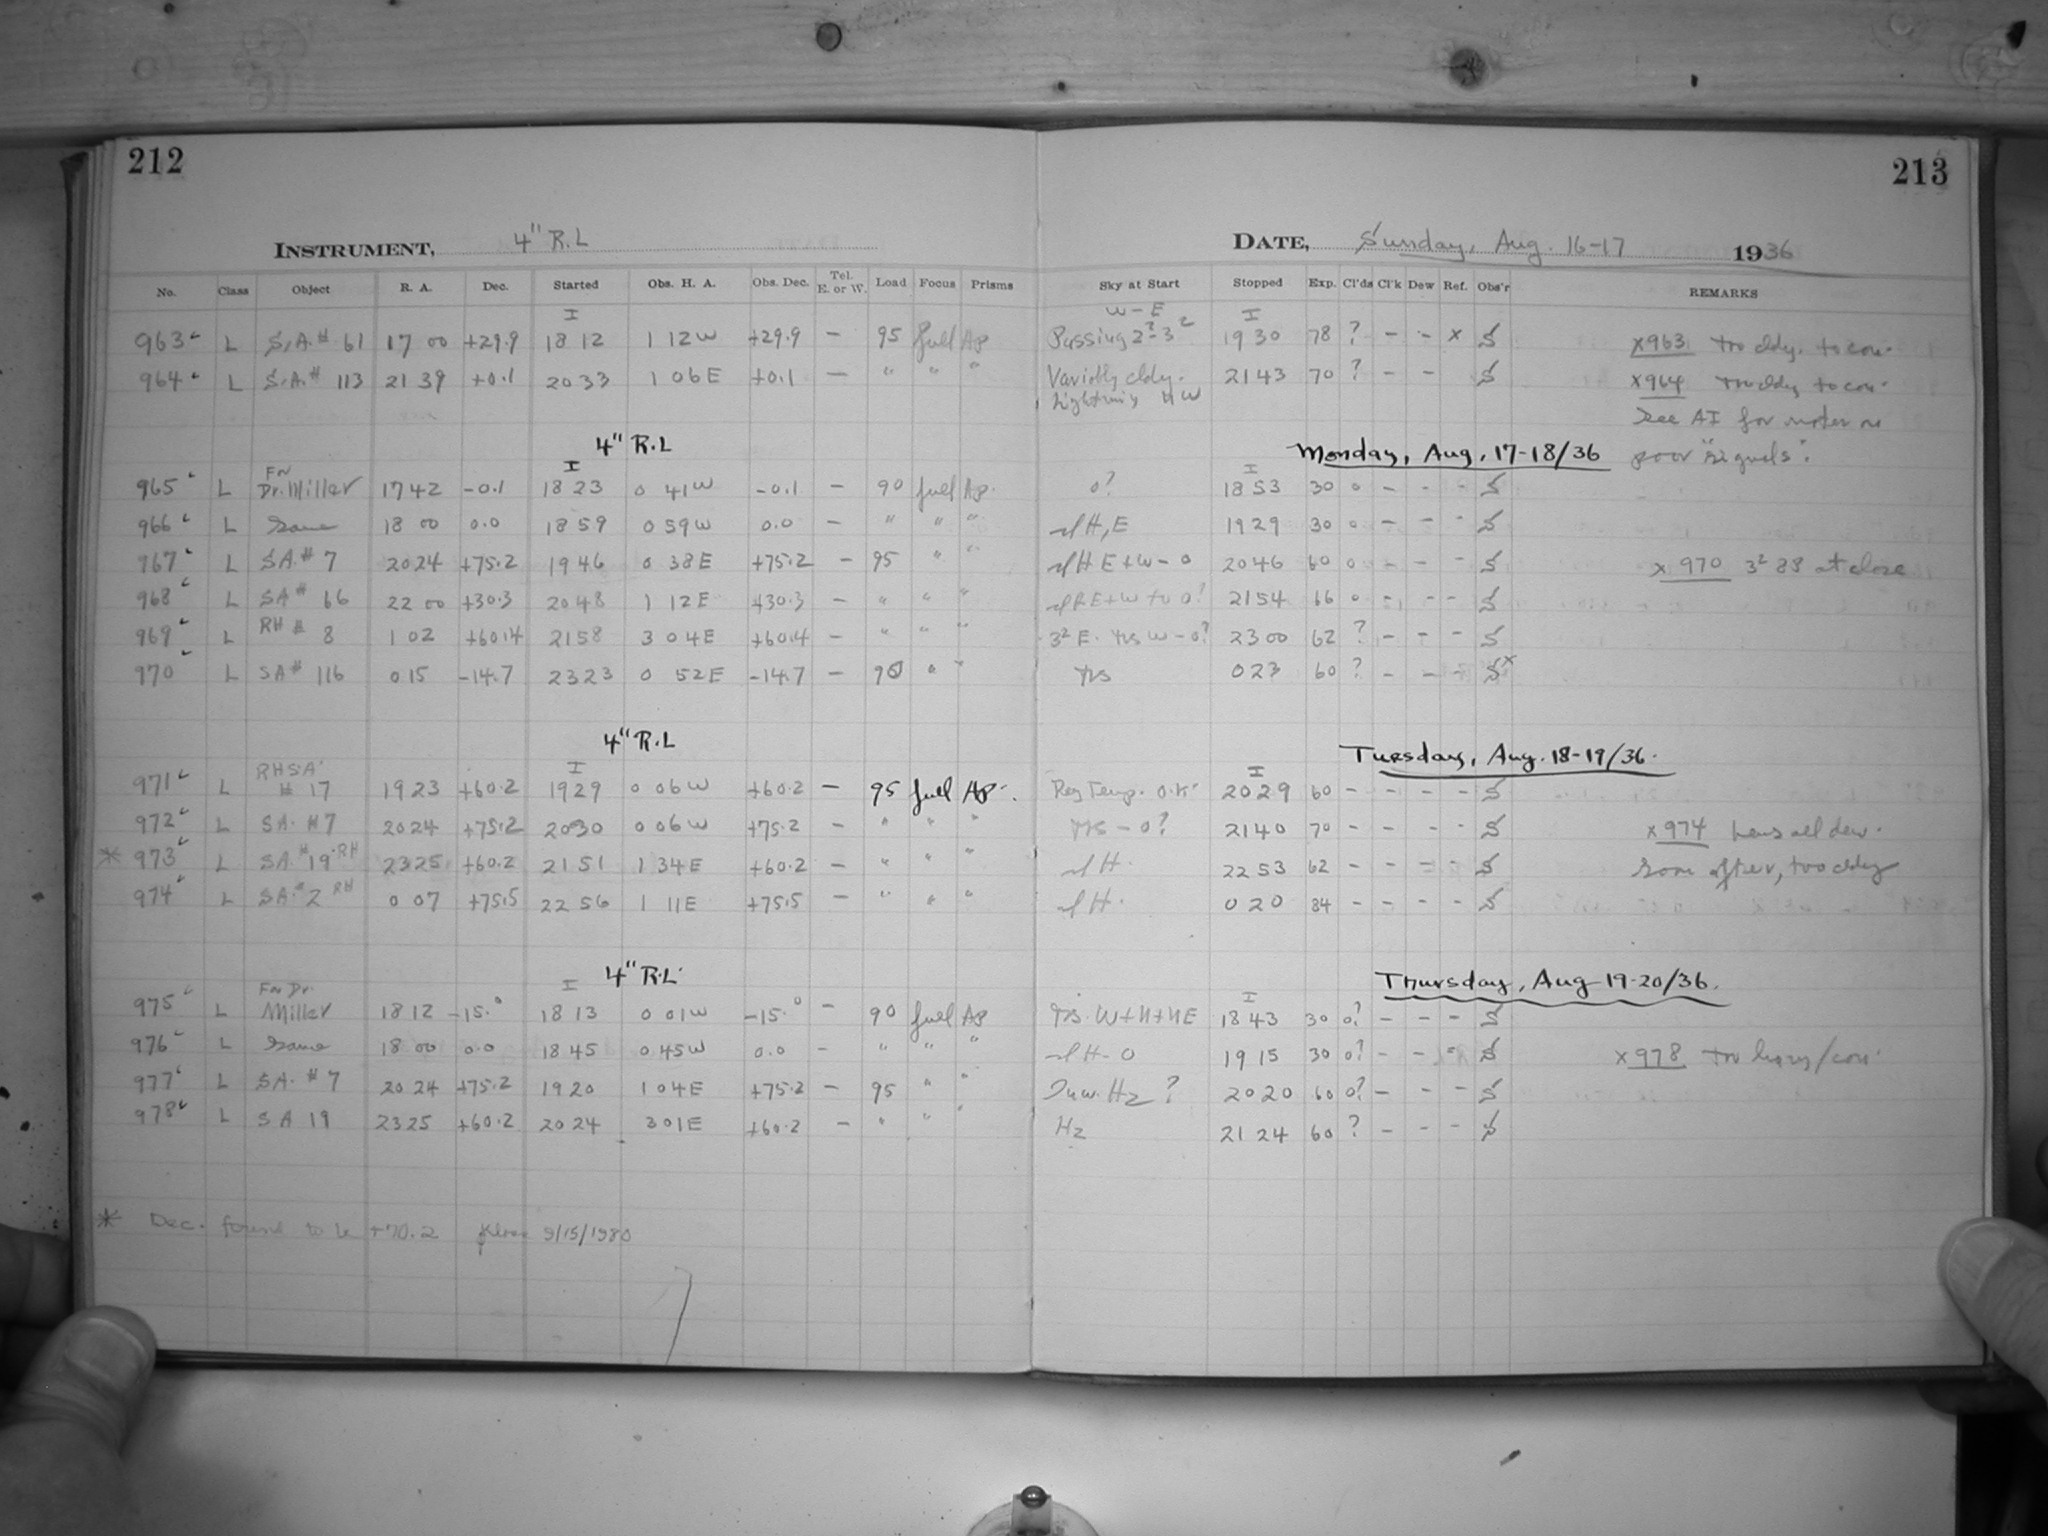 212
213
INSTRUMENT, 4" R.L
DATE, Sunday, Aug. 16-17 1936
No. Class Object R. A. Dec. Started Obs. H. A. Obs. Dec. Tel. E. or W. Load Focus Prisms Sky at Start Stopped Exp. Cl'ds Cl'k Dew Ref. Obs'r REMARKS
I W-E I
963 L S.A.# 61 17 00 +29.9 18 12 1 12W +29.9 - 95 full Ap Passing 19 30 78 ? - - x S x963 too cldy. to con.
964 L S.A.# 113 21 39 +0.1 20 33 1 06E +0.1 - " " " Variably cldy. 21 43 70 ? - - S x964 too cldy to con.
Lightning NW See AI for notes on
4" R.L Monday, Aug, 17-18/36 poor "signals".
I I
965 L For Dr. Miller 17 42 -0.1 18 23 0 41W -0.1 - 90 full Ap. 0? 18 53 30 0 - - - S
966 L Same 18 00 0.0 18 59 0 59W 0.0 - " " " H, E 19 29 30 0 - - - S
967 L SA.# 7 20 24 +75.2 19 46 0 38E +75.2 - 95 " " H E+W-0 20 46 60 0 - - - S x 970 3² 88 at close
968 L SA# 66 22 00 +30.3 20 48 1 12E +30.3 - " " " E+W to 0? 21 54 66 0 - - - S
969 L RH # 8 1 02 +60.4 21 58 3 04E +60.4 - " " " 3² E. W-0? 23 00 62 ? - - - S
970 L SA# 116 0 15 -14.7 23 23 0 52E -14.7 - 90 " " 0 23 60 ? - - - S x
4" R.L Tuesday, Aug. 18-19/36.
I I
971 L RHSA # 17 19 23 +60.2 19 29 0 06W +60.2 - 95 full Ap. Reg Temp. O.K. 20 29 60 - - - - S
972 L SA. #7 20 24 +75.2 20 30 0 06W +75.2 - " " " - 0? 21 40 70 - - - - S x974 Lens all dew.
* 973 L SA.# 19 RH 23 25 +60.2 21 51 1 34E +60.2 - " " " H. 22 53 62 - - - - S Soon after, too cldy
974 L SA.# 2 RH 0 07 +75.5 22 56 1 11E +75.5 - " " " H. 0 20 84 - - - - S
4" R.L Thursday, Aug 19-20/36.
I I
975 L For Dr. Miller 18 12 -15.° 18 13 0 01W -15.° - 90 full Ap W+N+NE 18 43 30 0? - - - S
976 L Same 18 00 0.0 18 45 0 45W 0.0 - " " " H-0 19 15 30 0? - - - S x978 too hazy/con.
977 L SA. #7 20 24 +75.2 19 20 1 04E +75.2 - 95 " " Hz ? 20 20 60 0? - - - S
978 L SA 19 23 25 +60.2 20 24 3 01E +60.2 - " " " Hz 21 24 60 ? - - - S
* Dec. found to be +70.2 9/15/1980